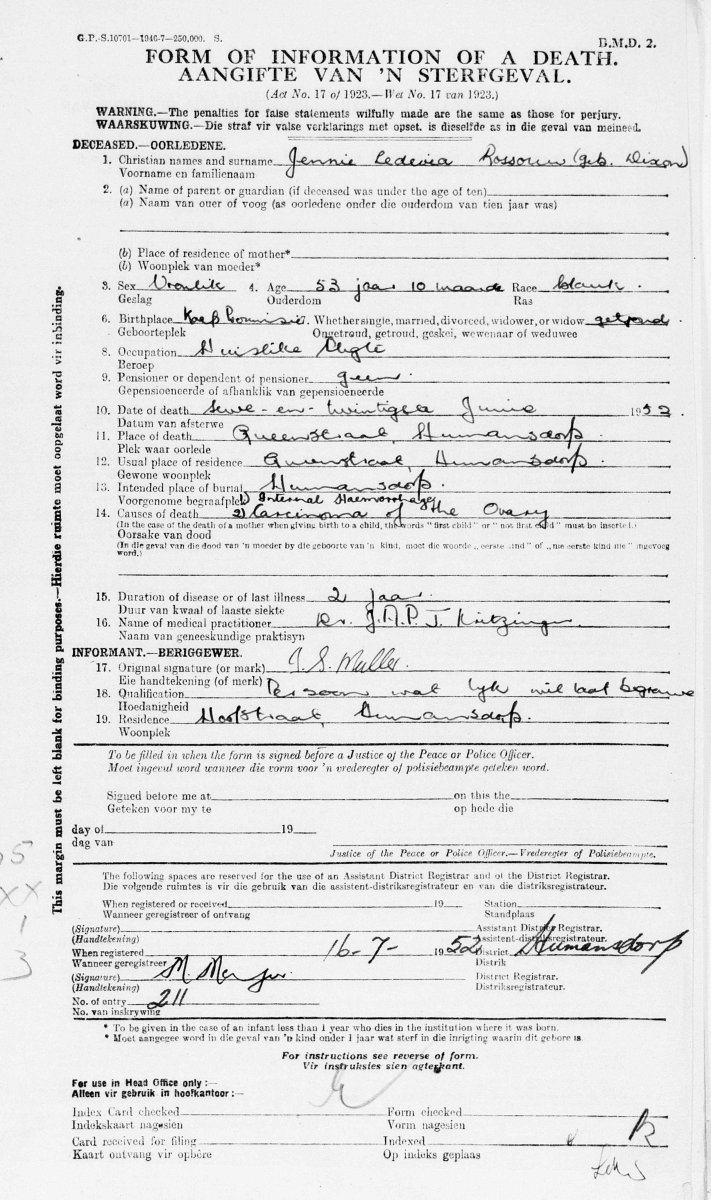 G.P.-S.10701—1946-7—250,000. S.
B.M.D. 2.
FORM OF INFORMATION OF A DEATH.
AANGIFTE VAN 'N STERFGEVAL.
(Act No. 17 of 1923.—Wet No. 17 van 1923.)
WARNING.—The penalties for false statements wilfully made are the same as those for perjury.
WAARSKUWING.—Die straf vir valse verklarings met opset, is dieselfde as in die geval van meineed.
DECEASED.—OORLEDENE.
1. Christian names and surname Jennie Ledivia Rossouw (geb. Dixon)
Voornaam en familienaam
2. (a) Name of parent or guardian (if deceased was under the age of ten)
(a) Naam van ouer of voog (as oorledene onder die ouderdom van tien jaar was)
(b) Place of residence of mother*
(b) Woonplek van moeder*
3. Sex Vroulik 4. Age 53 jaar 10 maande Race blank.
Geslag Ouderdom Ras
6. Birthplace Kaap Provinsie 7. Whether single, married, divorced, widower, or widow getroud.
Geboorteplek Ongetroud, getroud, geskei, wewenaar of weduwee
8. Occupation Huislike Pligte
Beroep
9. Pensioner or dependent of pensioner geen.
Gepensioeneerde of afhanklik van gepensioeneerde
10. Date of death sewe-en-twintigste Junie 1952.
Datum van afsterwe
11. Place of death Queenstraat, Humansdorp.
Plek waar oorlede
12. Usual place of residence Queenstraat, Humansdorp.
Gewone woonplek
13. Intended place of burial Humansdorp.
Voorgenome begraafplek 1) Internal Haemorrhage
14. Causes of death 2) Carcinoma of the Ovary
(In the case of the death of a mother when giving birth to a child, the words "first child" or "not first child" must be inserted.)
Oorsake van dood
(In die geval van die dood van 'n moeder by die geboorte van 'n kind, moet die woorde „eerste kind" of „nie eerste kind nie" ingevoeg word.)
15. Duration of disease or of last illness 2 jaar.
Duur van kwaal of laaste siekte
16. Name of medical practitioner Dr. J.A.P.J. Kritzinger
Naam van geneeskundige praktisyn
INFORMANT.—BERIGGEWER.
17. Original signature (or mark) J. S. Muller.
Eie handtekening (of merk)
18. Qualification Persoon wat lyk wil laat begrawe
Hoedanigheid
19. Residence Hoofstraat, Humansdorp.
Woonplek
To be filled in when the form is signed before a Justice of the Peace or Police Officer.
Moet ingevul word wanneer die vorm voor 'n vrederegter of polisiebeampte geteken word.
Signed before me at on this the
Geteken voor my te op hede die
day of 19
dag van
Justice of the Peace or Police Officer.—Vrederegter of Polisiebeampte.
The following spaces are reserved for the use of an Assistant District Registrar and of the District Registrar.
Die volgende ruimtes is vir die gebruik van die assistent-distriksregistrateur en van die distriksregistrateur.
When registered or received 19 Station
Wanneer geregistreer of ontvang Standplaas
(Signature) Assistant District Registrar.
(Handtekening) Assistent-distriksregistrateur.
When registered 16-7- 1952 District Humansdorp
Wanneer geregistreer Distrik
(Signature) M. District Registrar.
(Handtekening) Distriksregistrateur.
No. of entry 211
No. van inskrywing
* To be given in the case of an infant less than 1 year who dies in the institution where it was born.
* Moet aangegee word in die geval van 'n kind onder 1 jaar wat sterf in die inrigting waarin dit gebore is.
For instructions see reverse of form.
Vir instruksies sien agterkant.
For use in Head Office only:—
Alleen vir gebruik in hoofkantoor:—
Index Card checked Form checked
Indekskaart nagesien Vorm nagesien
Card received for filing Indexed
Kaart ontvang vir opbêre Op indeks geplaas
This margin must be left blank for binding purposes.—Hierdie ruimte moet oopgelaat word vir inbinding.
5
XX
1
3